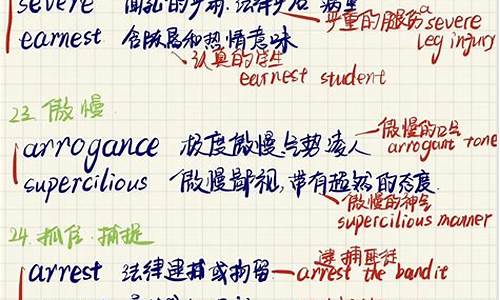 severe
严重的腿伤 a severe
leg injury
earnest 含愿和热情意味
认真的学生
earnest student
23. 傲慢
arrogance 极度傲慢、气势凌人
傲慢的口气
arrogant tone
supercilious 傲慢鄙视,带有超然的态度.
傲慢的神气
supercilious manner
24. 抓住. 捕捉
arrest 法律逮捕或拘留
逮捕匪徒
arrest the bandit